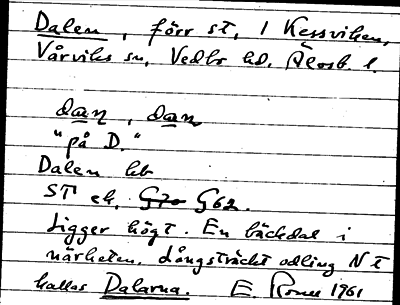 Dalen, förr st, i Kessviken,
Vårviks sn, Vedbo hd, Älvsb. l.
dan, dan
"på D."
Dalen hb
ST ek. G70 G62.
Ligger högt. En bäckdal i
närheten. Långsträckt odling N t
kallas Dalarna. E. 1961